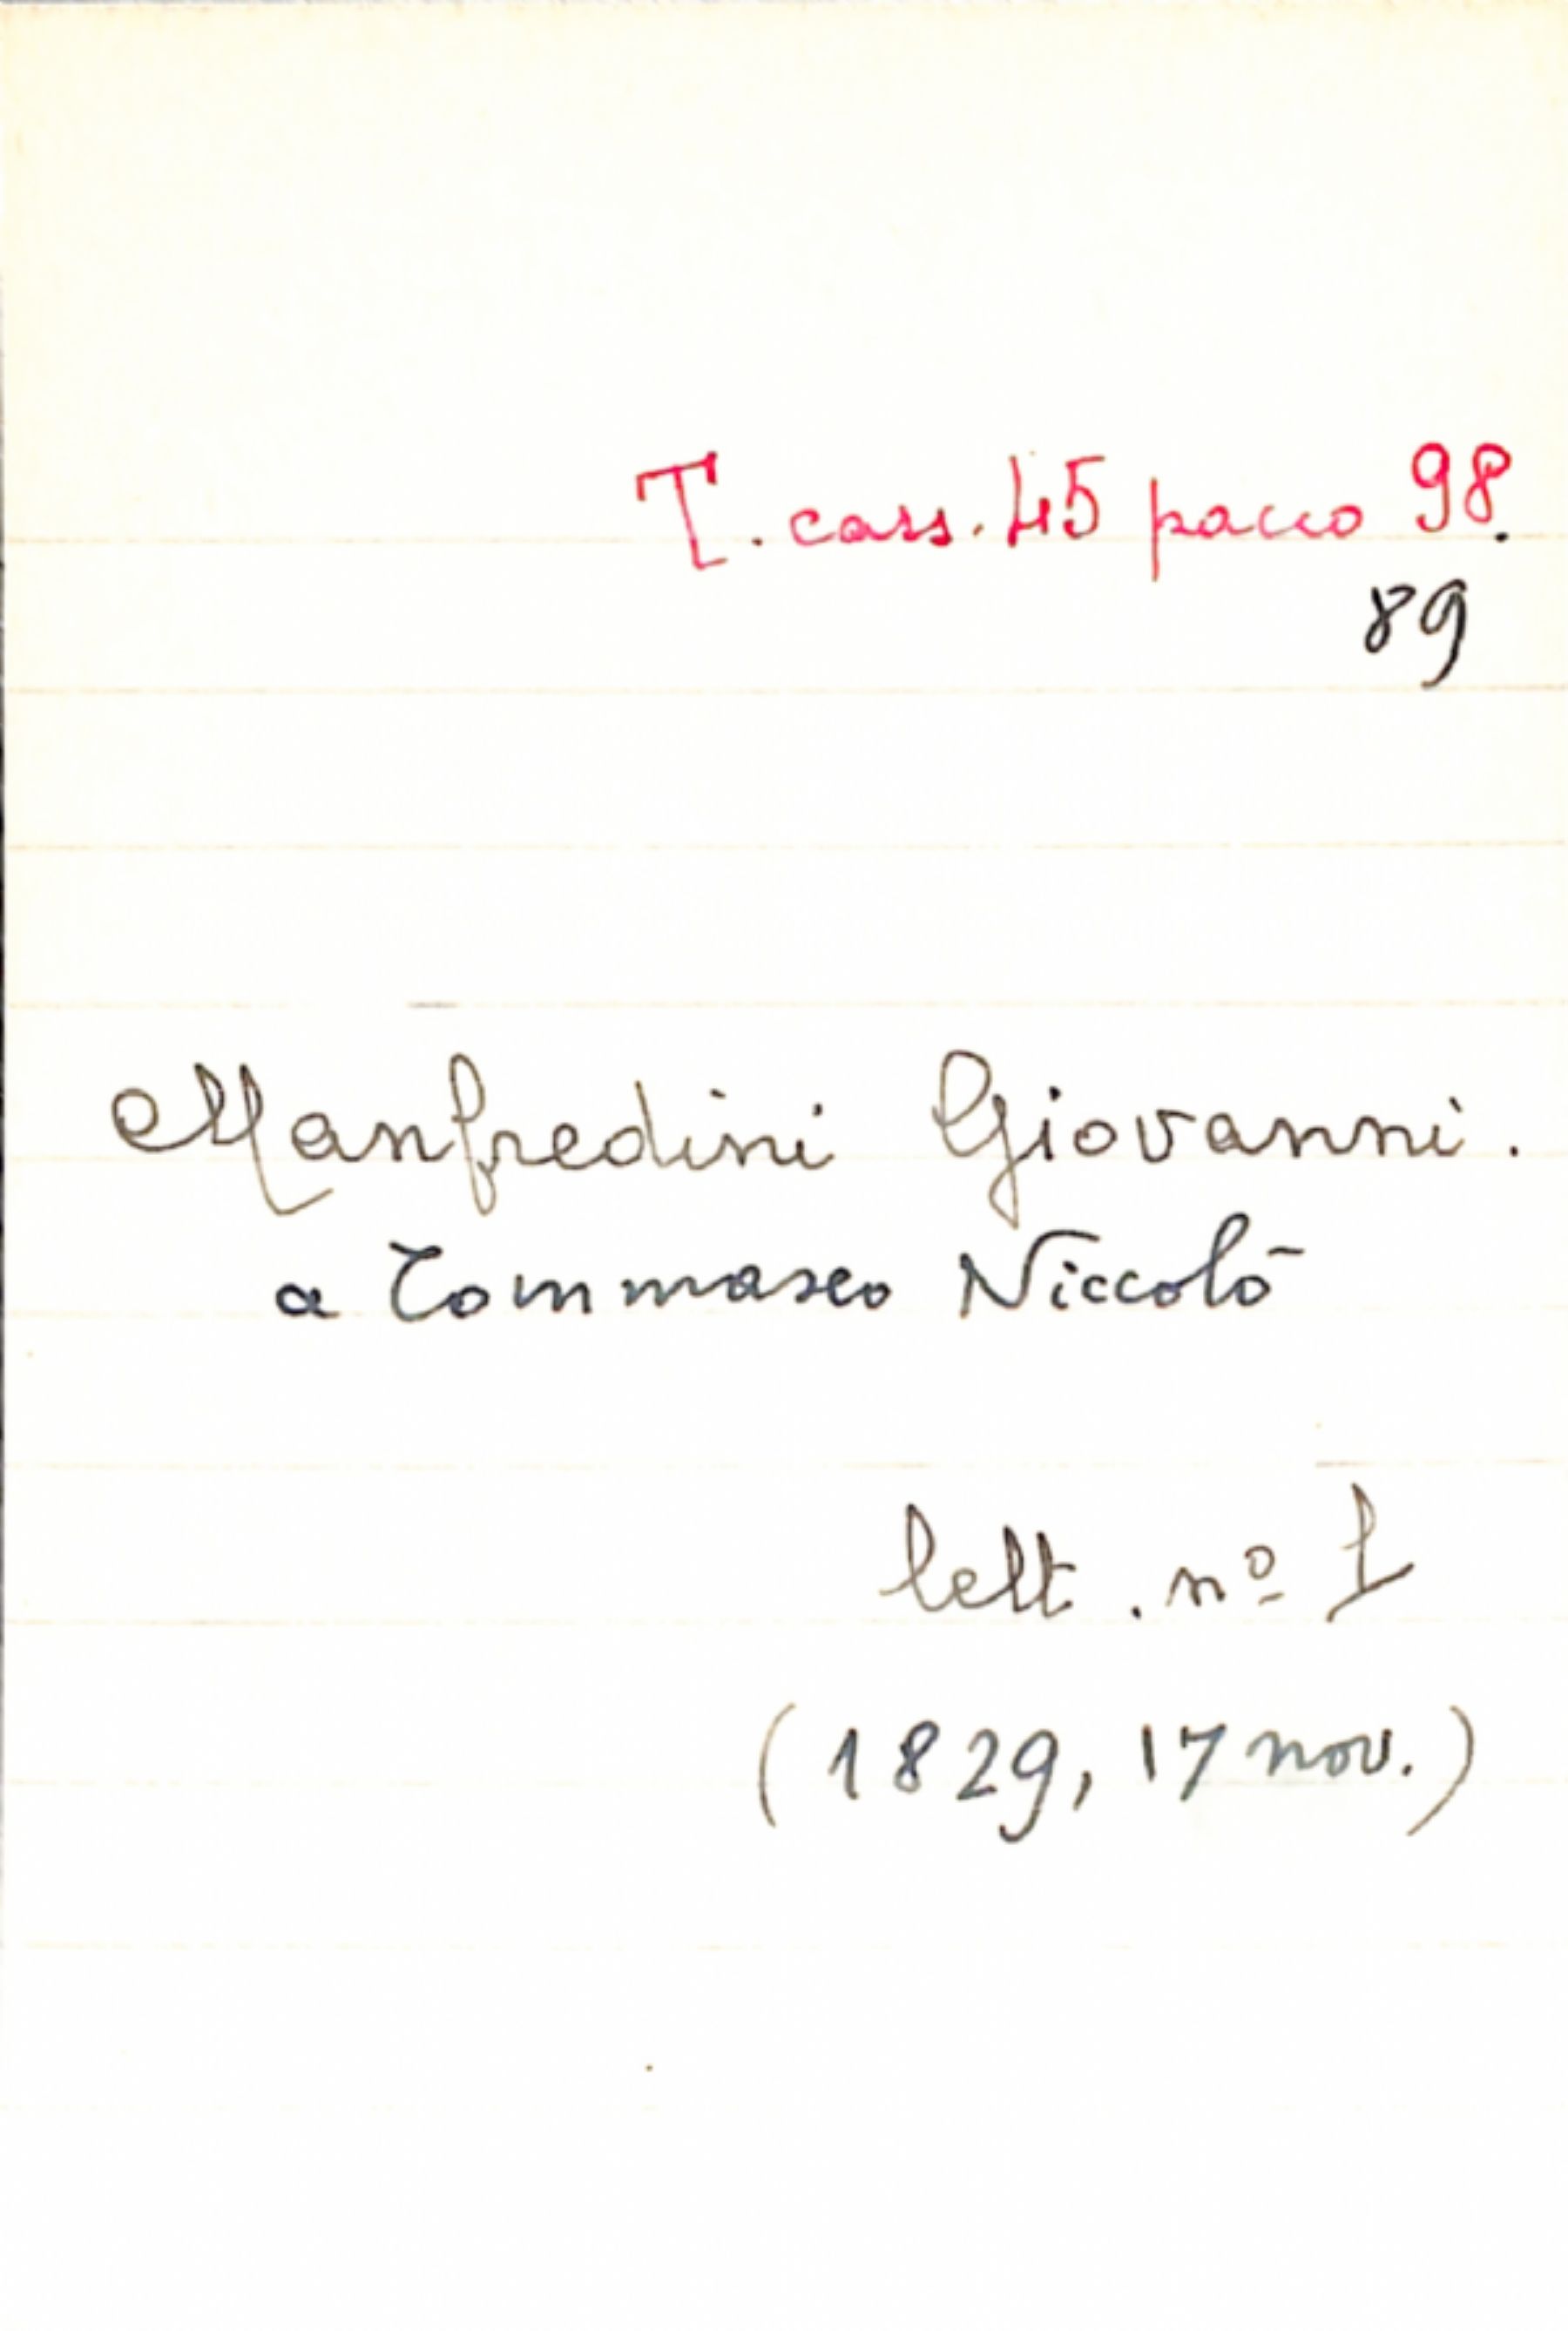 T. cass. 45 pacco 98.
89
Manfredini Giovanni.
a Tommaseo Niccolò
lett. nº 1
(1829, 17 nov.)